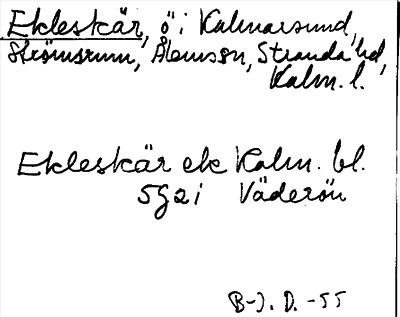 Ekleskär, ö i Kalmarsund,
Strömsrum, Ålemssn, Stranda hd,
Kalm. l.
Ekleskär ek Kalm. bl.
5g2i Väderön
B-J. D. -55